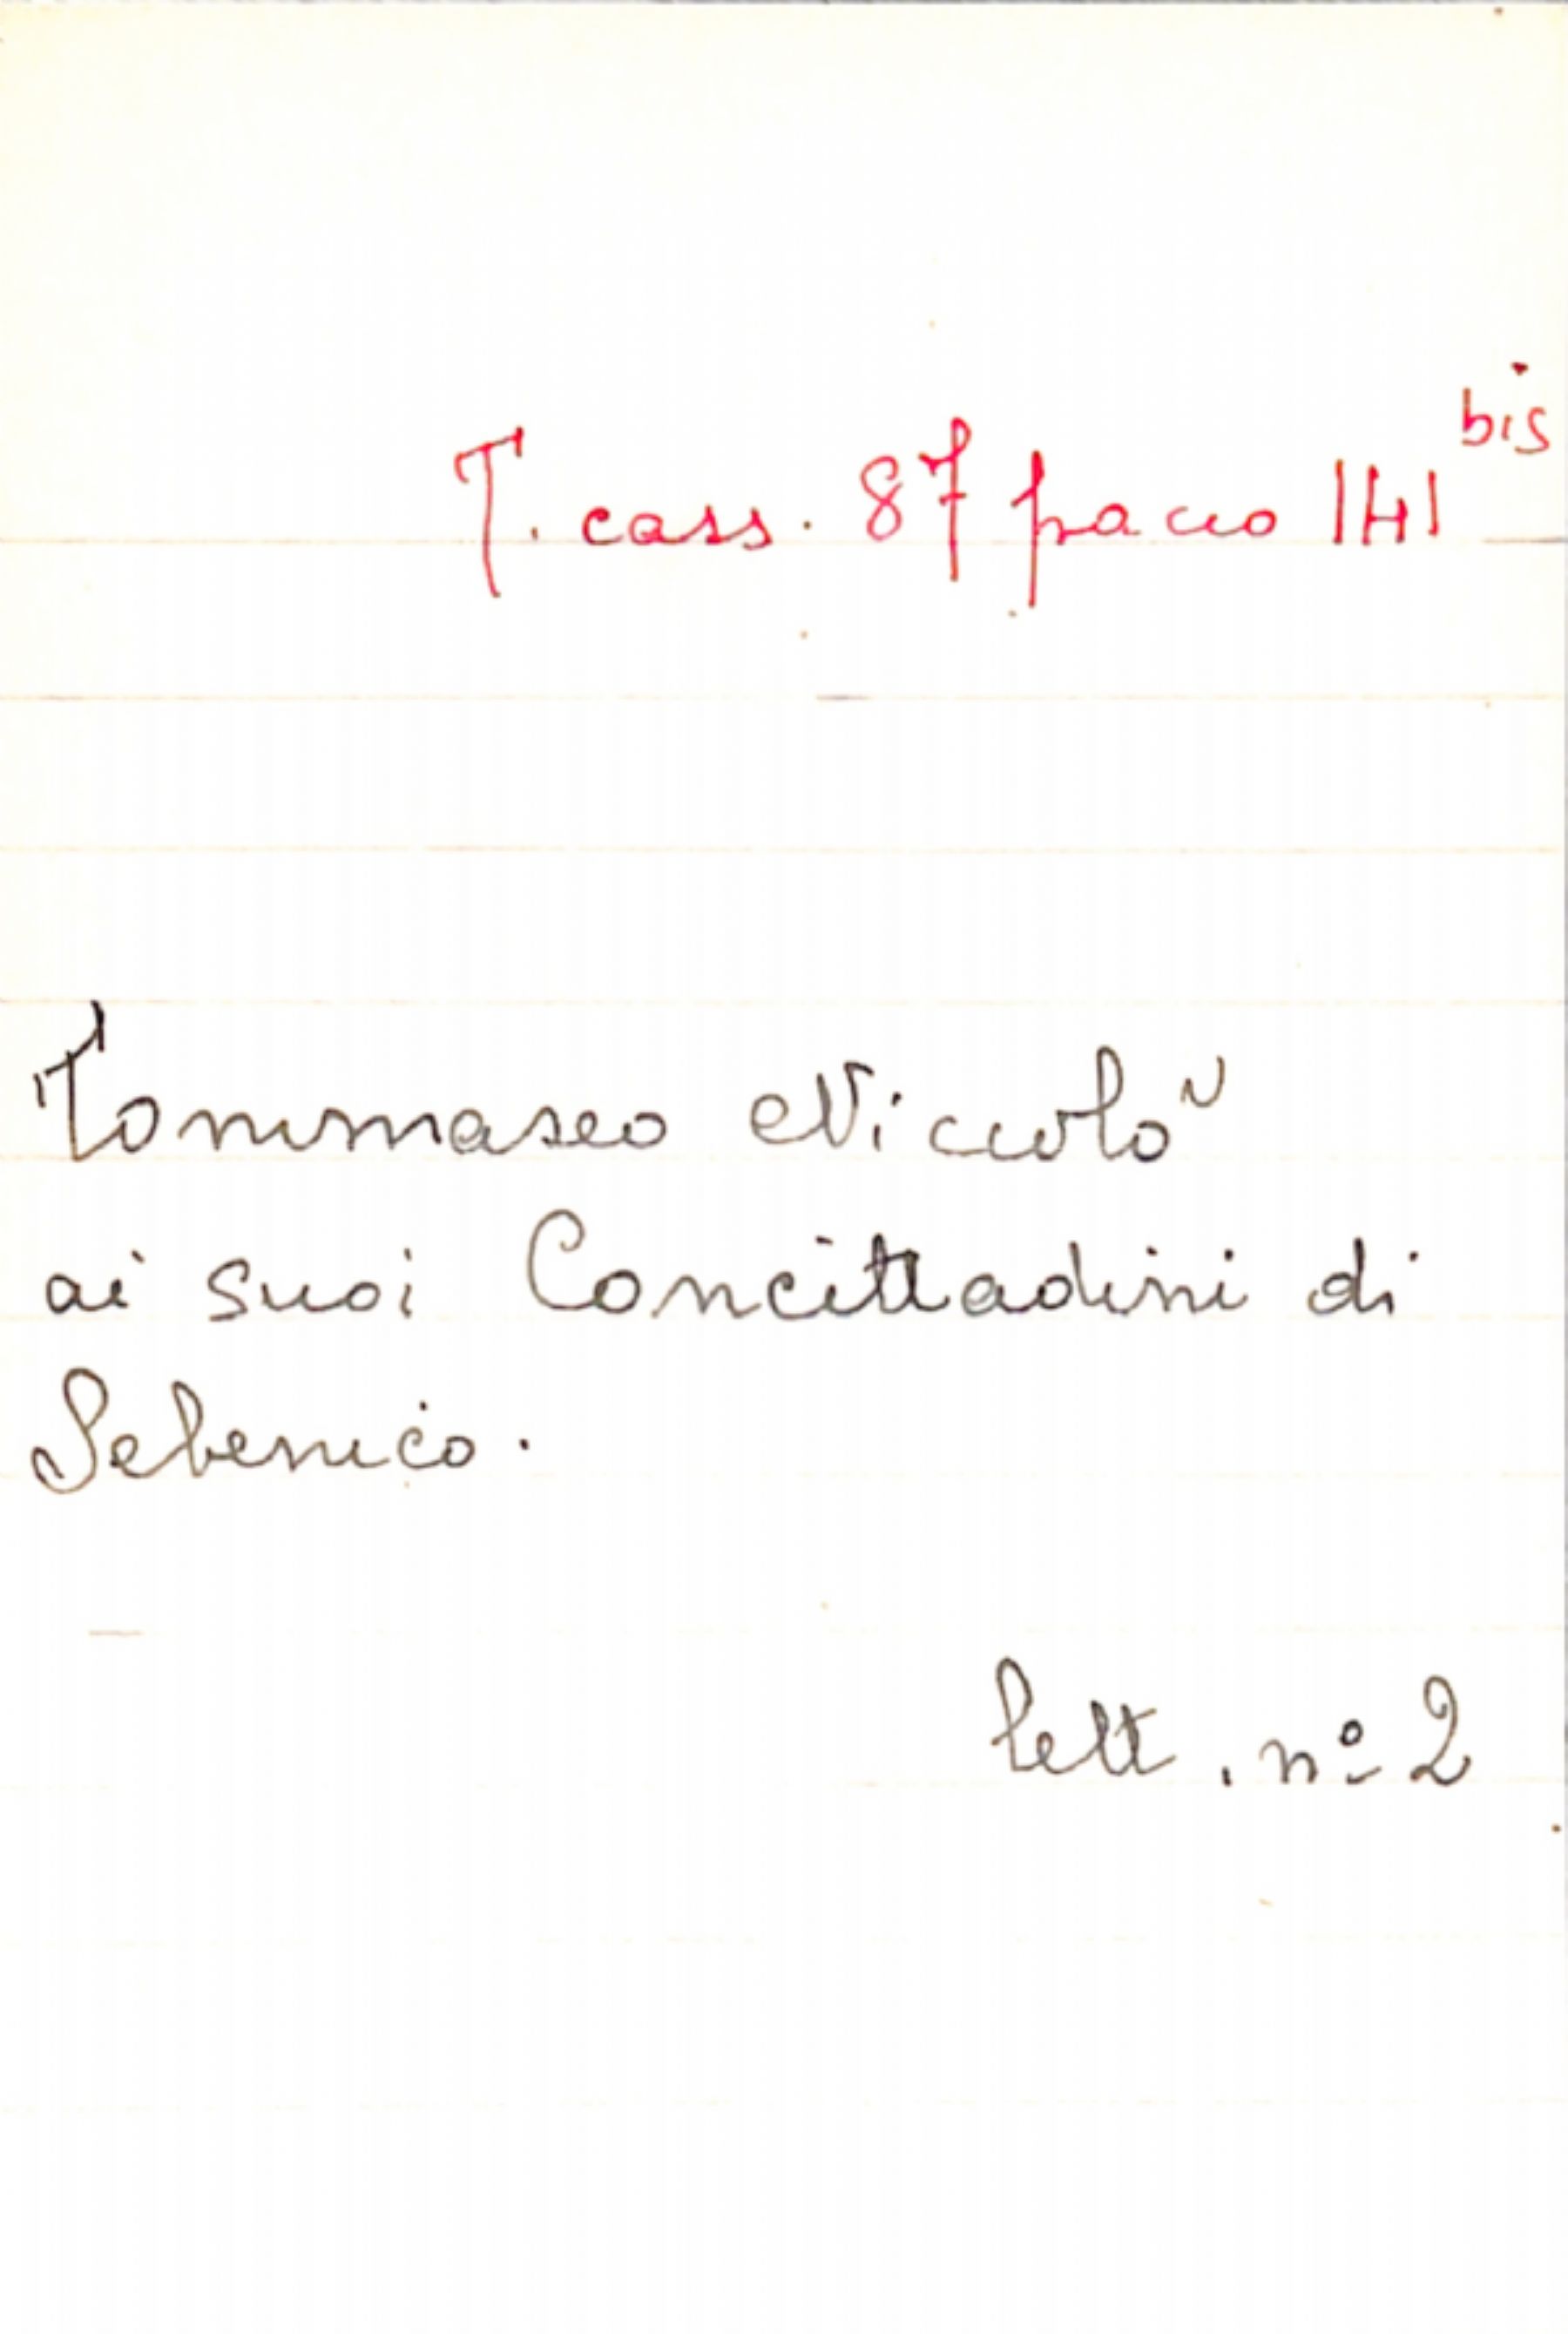 T. cass. 87 pacco 141 bis
Tommaseo Niccolò
ai suoi Concittadini di
Sebenico.
lett. nº 2